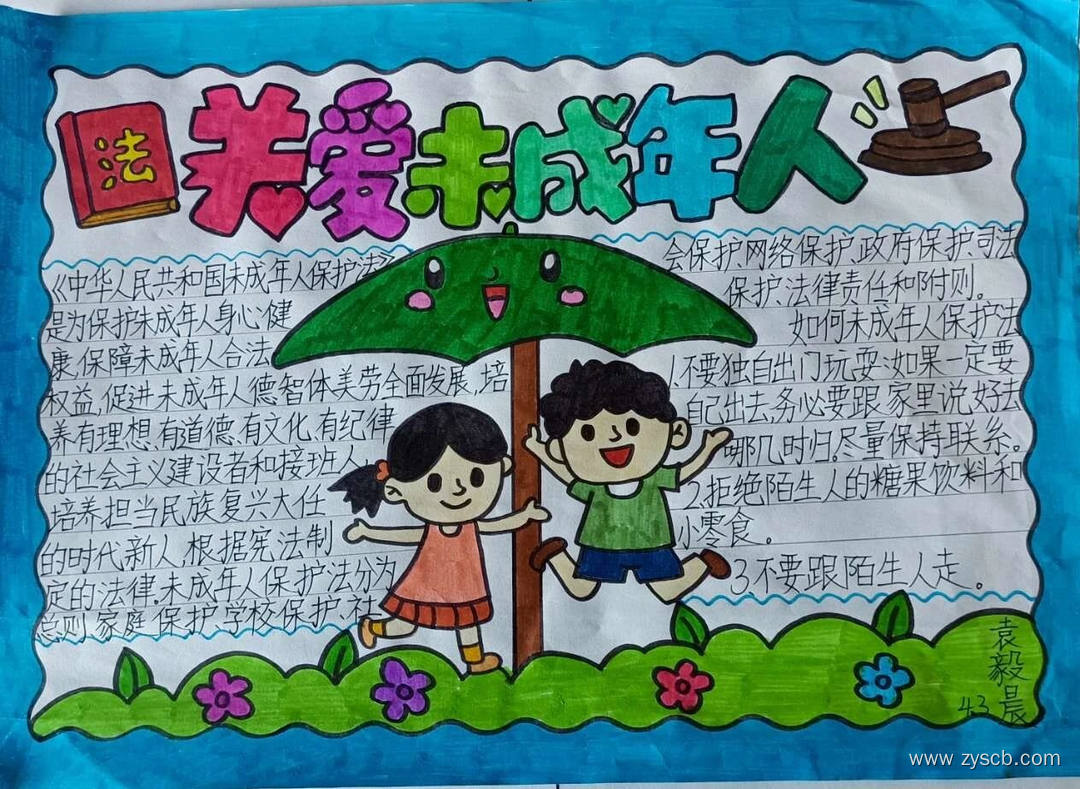 法
关爱未成年人
《中华人民共和国未成年人保护法》
是为保护未成年人身心健
康,保障未成年人合法
权益,促进未成年人德智体美劳全面发展,培
养有理想、有道德、有文化、有纪律
的社会主义建设者和接班人
培养担当民族复兴大任
的时代新人,根据宪法制
定的法律,未成年人保护法分为
总则、家庭保护、学校保护、社
会保护、网络保护、政府保护、司法
保护、法律责任和附则。
如何未成年人保护法
1.不要独自出门玩耍:如果一定要
自己出去,务必要跟家里说好去
哪几时归。尽量保持联系。
2.拒绝陌生人的糖果饮料和
小零食。
3.不要跟陌生人走。
袁毅晨
43
www.zyscb.com